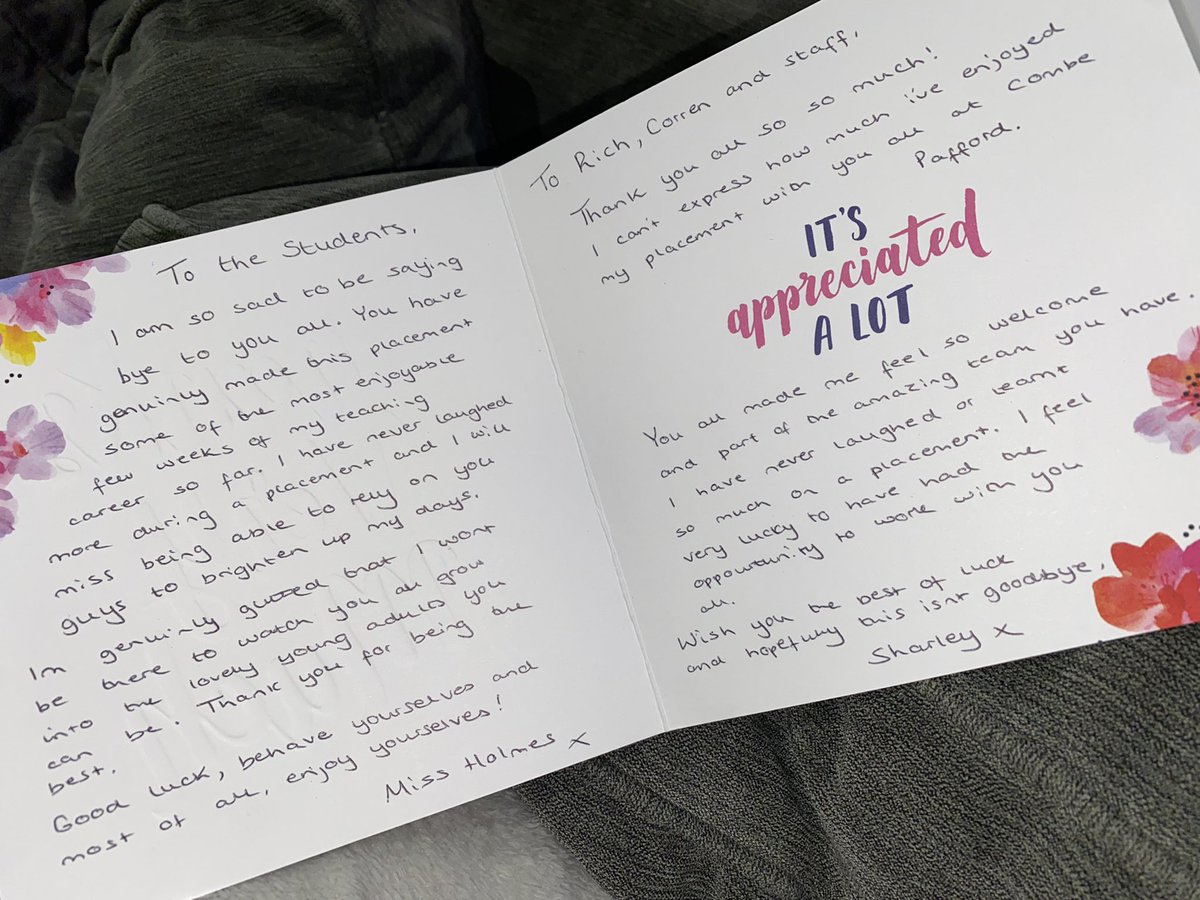 To the Students,
I am so sad to be saying
bye to you all. You have
genuinly made this placement
some of the most enjoyable
few weeks of my teaching
career so far. I have never laughed
more during a placement and I will
miss being able to rely on you
guys to brighten up my days.
Im genuinly gutted that I wont
be there to watch you all grow
into the lovely young adults you
can be. Thank you for being the
best.
Good luck, behave yourselves and
most of all, enjoy yourselves!
Miss Holmes x
To Rich, Corren and staff,
Thank you all so so much!
I can't express how much i've enjoyed
my placement with you all at Combe
Pafford.
IT'S
appreciated
A LOT
You all made me feel so welcome
and part of the amazing team you have.
I have never laughed or learnt
so much on a placement. I feel
very lucky to have had the
oppourtunity to work with you
all.
Wish you the best of luck
and hopefully this isnt goodbye,
Sharley x